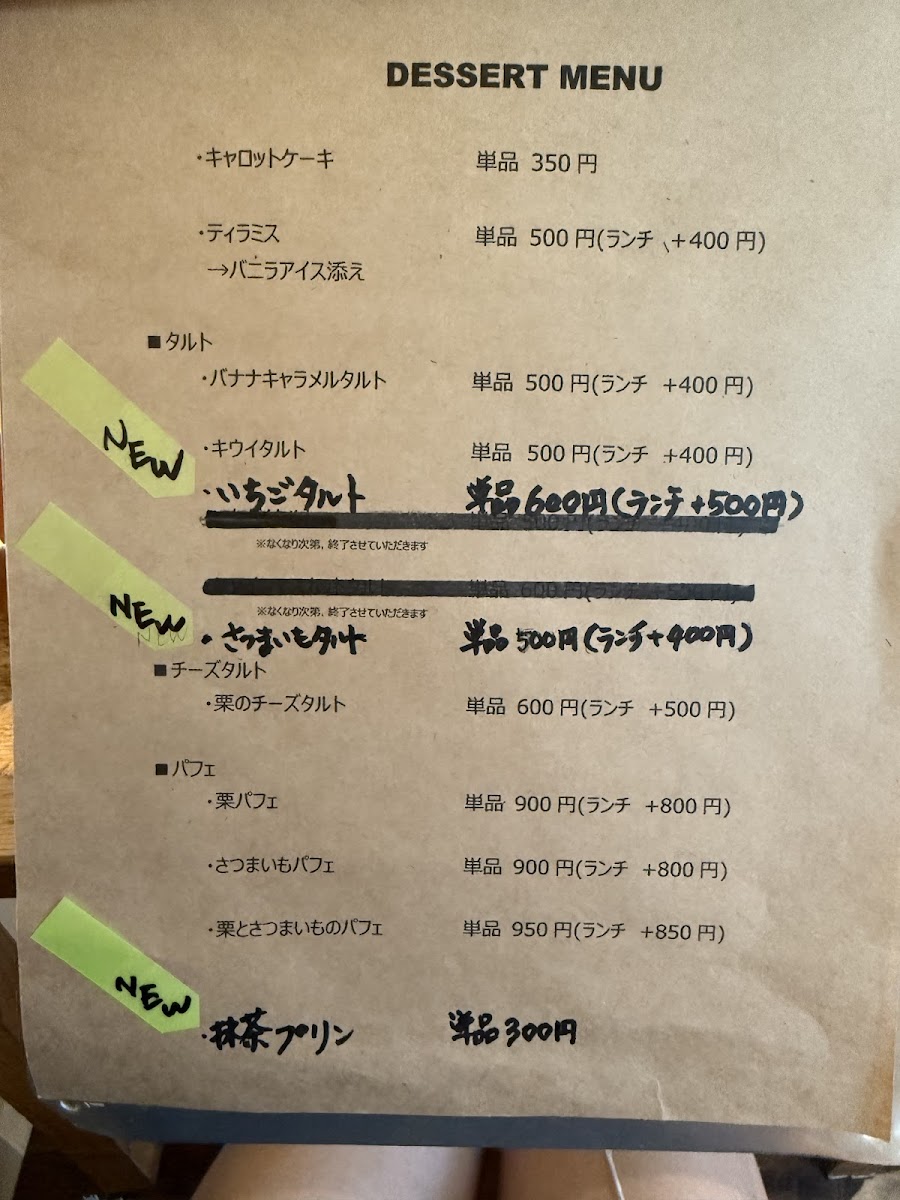 DESSERT MENU
・キャロットケーキ 単品 350 円
・ティラミス 単品 500 円(ランチ +400 円)
→バニラアイス添え
■ タルト
・バナナキャラメルタルト 単品 500 円(ランチ +400 円)
・キウイタルト 単品 500 円(ランチ +400 円)
NEW ・いちごタルト 単品600円(ランチ+500円)
※なくなり次第、終了させていただきます
※なくなり次第、終了させていただきます
NEW ・さつまいもタルト 単品500円(ランチ+400円)
■ チーズタルト
・栗のチーズタルト 単品 600 円(ランチ +500 円)
■ パフェ
・栗パフェ 単品 900 円(ランチ +800 円)
・さつまいもパフェ 単品 900 円(ランチ +800 円)
・栗とさつまいものパフェ 単品 950 円(ランチ +850 円)
NEW ・抹茶プリン 単品300円